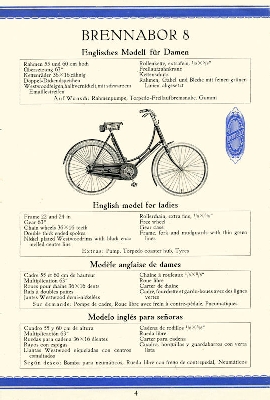 BRENNABOR 8
Englisches Modell für Damen
Rahmen 55 und 60 cm hoch
Übersetzung 63"
Kettenräder 36×16 zähnig
Doppel-Dickendspeichen
Westwoodfelgen, halbvernickelt, mit schwarzem
Emaillestreifen
Rollenkette, extrafein, ½×⅛"
Freilaufzahnkranz
Kettenschutz
Rahmen, Gabel und Bleche mit feinen grünen
Linien abgesetzt
Auf Wunsch: Rahmenpumpe, Torpedo-Freilaufbremsnabe, Gummi
English model for ladies
Frame 22 and 24 in
Gear 63"
Chain wheels 36×16 teeth
Double thick ended spokes
Nickel plated Westwoodrims with black ena-
melled centre line
Rollerchain, extra fine, ½×⅛"
Free wheel
Gear case
Frame, fork and mudguards with thin green
lines
Extras: Pump, Torpedo coaster hub, Tyres
Modèle anglaise de dames
Cadre 55 et 60 cm de hauteur
Multiplication 63"
Roues pour chaîne 36×16 dents
Rais à doubles pattes
Jantes Westwood demi-nickelées
Chaîne à rouleaux ½×⅛"
Roue libre
Carter de chaîne
Cadre, fourche et garde-boues avec des lignes
vertes
Sur demande: Pompe de cadre, Roue libre avec frein à contre-pédale, Pneumatiques.
Modelo inglés para señoras
Cuadro 55 y 60 cm de altura
Multiplicación 63"
Ruedas para cadena 36×16 dientes
Rayos con espigas
Llantas Westwood niqueladas con centros
esmaltados
Cadena de rodillos ½×⅛"
Rueda libre
Carter para cadena
Cuadro, horquillas y guardabarros con verta
lista
Según deseo: Bomba para neumáticos, Rueda libre con freno de contrapedal, Neumáticos
4